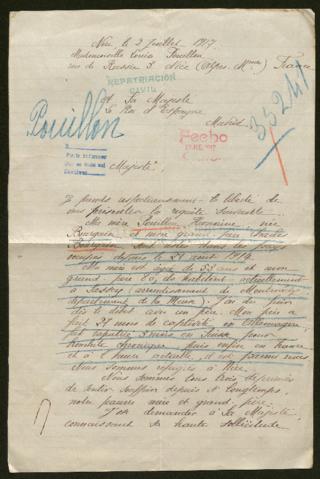 Nice, le 2 Juillet 1917.
Mademoiselle Louise Pouillon
rue de Russie 3. Nice (Alpes. Mmes) France
REPATRIACIÓN
CIVIL
A Sa Majesté
Le Roi d'Espagne
Madrid
Pouillon
35211
Fecho
Majesté.
Je prends respectueusement la liberté de
vous présenter la requête suivante
Ma mère Pouillon, née
Bourguin et mon grand père
Bourguin sont restés dans les pays
occupés depuis le 27 août 1914.
Ma mère est âgée de 53 ans et mon
grand père 80, ils habitent actuellement
à arrondissement de Montmédy
département de la Meuse). J'ai du fuir
dès le début avec un père. Mon père a
fait 27 mois de captivité en Allemagne,
fut rapatrié 3 mois en Suisse pour
bronchite chronique puis enfin en France
et à l'heure actuelle, il est parmi nous
Nous sommes réfugiés à Nice.
Nous sommes tous trois
de sentir souffrir depuis si longtemps,
notre pauvre mère et grand-père.
J'ose demander à Sa Majesté,
connaissant sa haute sollicitude